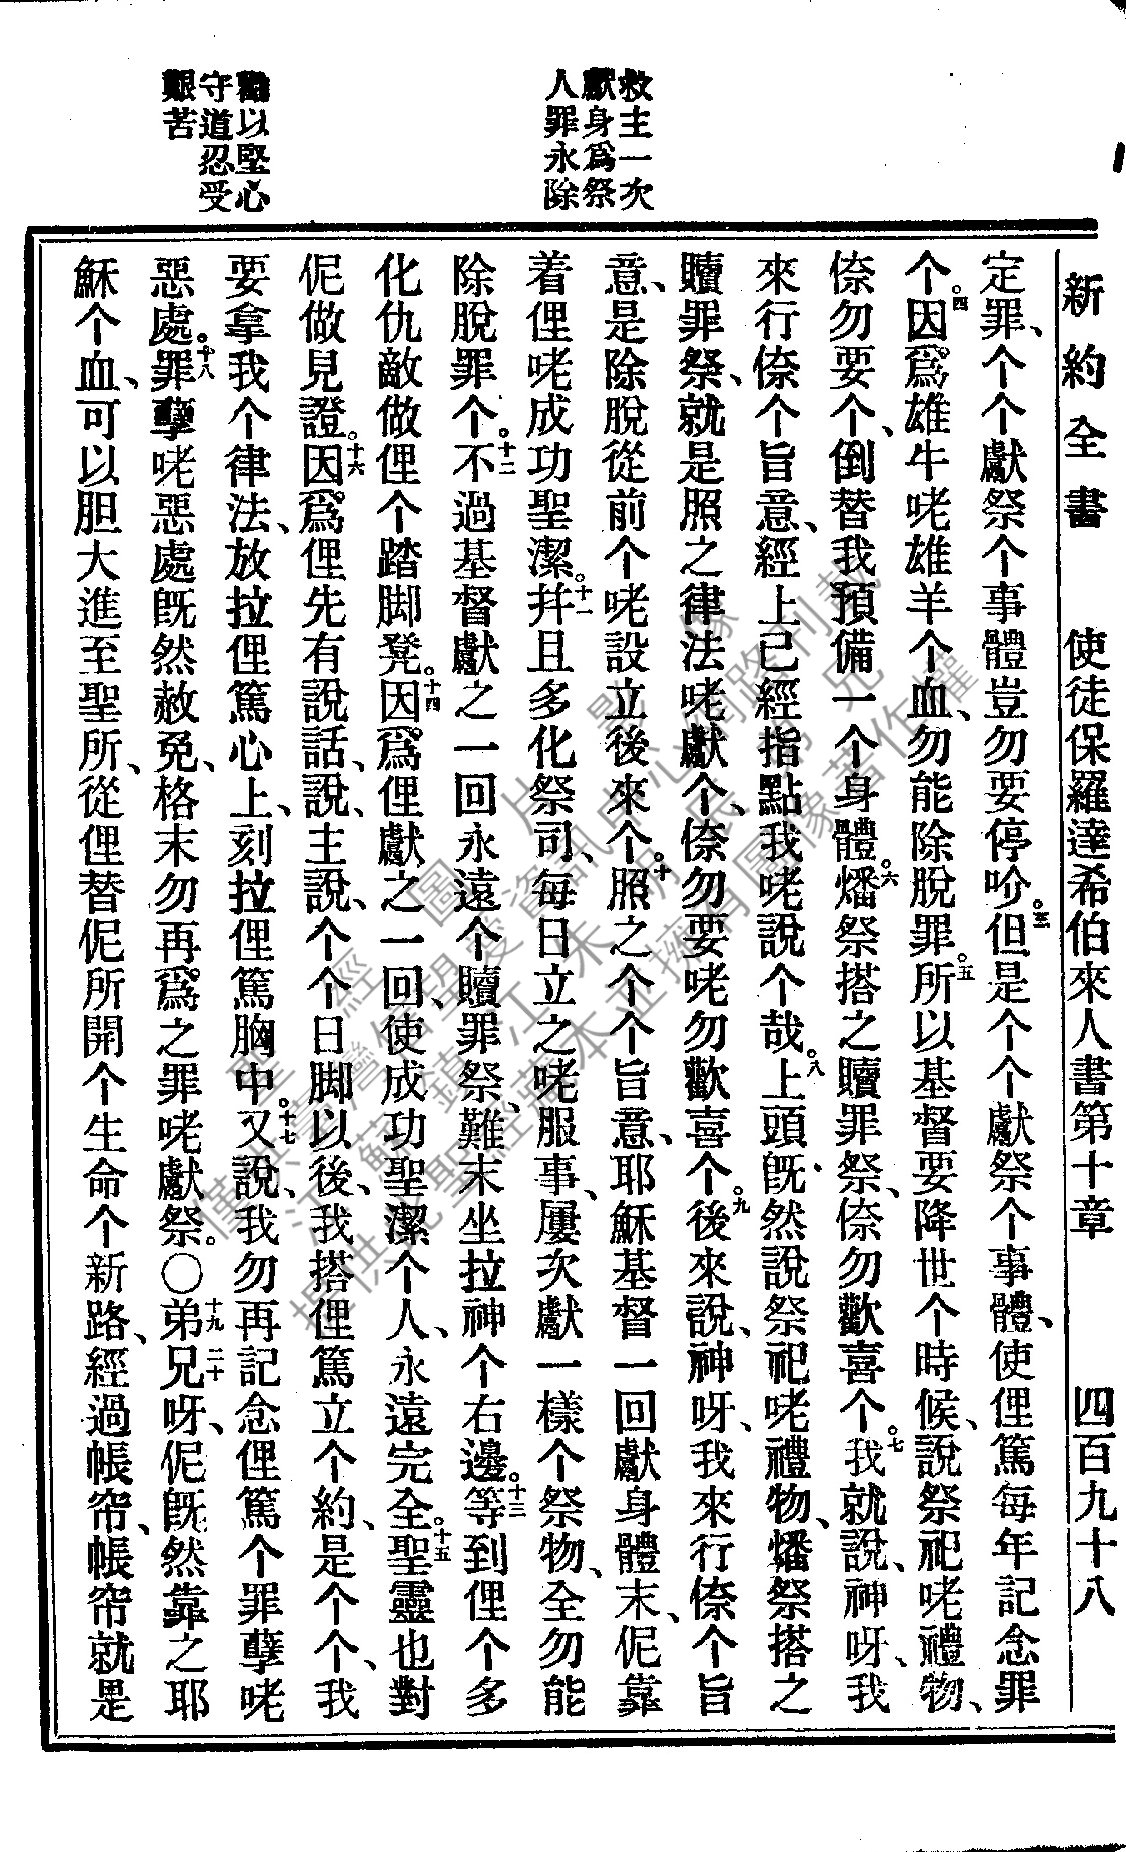 救主一次
獻身爲祭
人罪永除
勸以堅心
守道忍受
艱苦
新約全書 使徒保羅達希伯來人書第十章 四百九十八
定罪、个个獻祭个事體豈勿要停吤。三但是个个獻祭个事體、使俚篤每年記念罪
个。四因爲雄牛咾雄羊个血、勿能除脫罪。五所以基督要降世个時候、說祭祀咾禮物、
倷勿要个、倒替我預備一个身體。六燔祭搭之贖罪祭、倷勿歡喜个。七我就說、神呀、我
來行倷个旨意、經上已經指點我咾說个哉。八上頭既然說祭祀咾禮物、燔祭搭之
贖罪祭、就是照之律法咾獻个、倷勿要咾勿歡喜个。九後來說、神呀、我來行倷个旨
意、是除脫從前个咾設立後來个。十照之个个旨意、耶穌基督一回獻身體末、伲靠
着俚咾成功聖潔。十一幷且多化祭司、每日立之咾服事、屢次獻一樣个祭物、全勿能
除脫罪个。十二不過基督獻之一回永遠个贖罪祭、難末坐拉神个右邊。十三等到俚个多
化仇敵做俚个踏脚凳。十四因爲俚獻之一回、使成功聖潔个人、永遠完全。十五聖靈也對
伲做見證。十六因爲俚先有說話、說、主說、个个日脚以後、我搭俚篤立个約、是个个、我
要拿我个律法、放拉俚篤心上、刻拉俚篤胸中。十七又說、我勿再記念俚篤个罪孽咾
惡處。十八罪孽咾惡處既然赦免、格末勿再爲之罪咾獻祭。〇十九弟兄呀、二十伲既然靠之耶
穌个血、可以胆大進至聖所、從俚替伲所開个生命个新路、經過帳帘、帳帘就是
聖經圖片影像
僅供臺灣信望愛資訊中心網路刊載
江蘇鎮江朱朝民弟兄
提供此聖經藏本並擁有圖像著作權